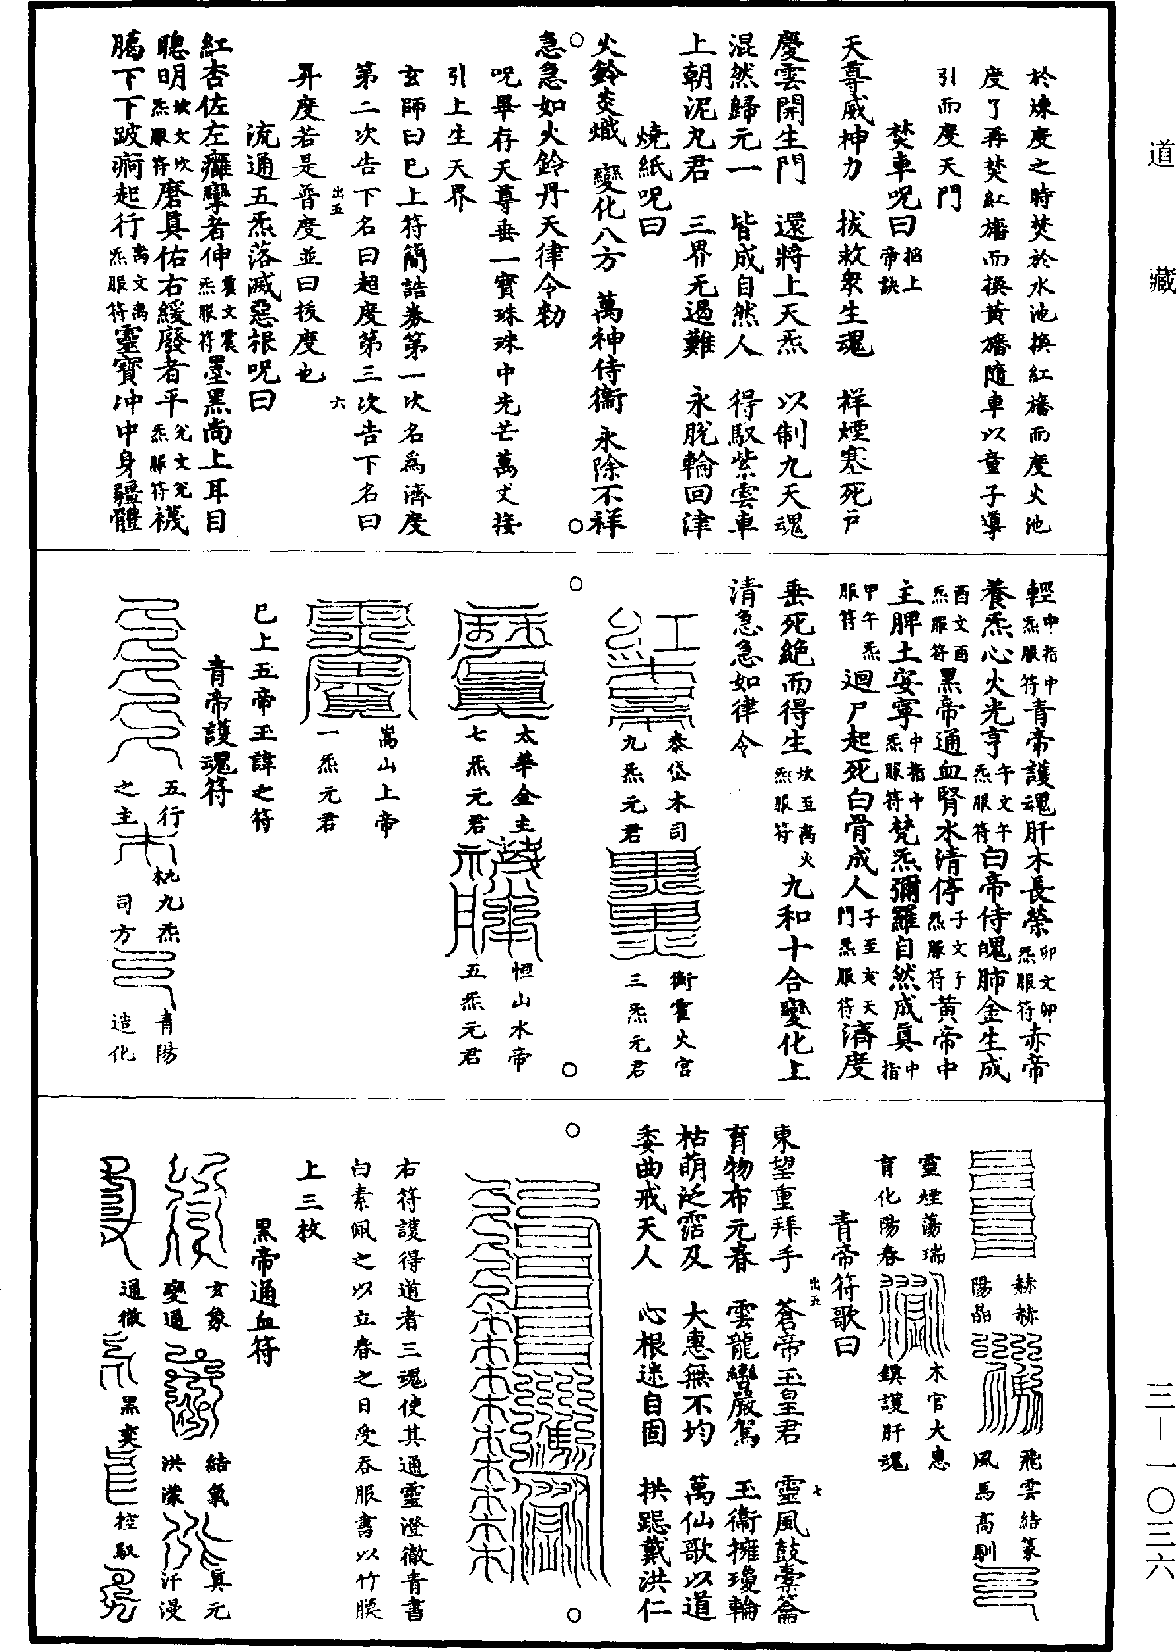 道藏
三—一〇三六
於煉度之時焚於水池換紅旛而度火池
度了再焚紅旛而換黃旛隨車以童子導
引而度天門
焚車呪曰掐上帝訣
天尊威神力　拔救衆生魂　祥煙塞死戶
慶雲開生門　還將上天炁　以制九天魂
混然歸元一　皆成自然人　得馭紫雲車
上朝泥丸君　三界无過難　永脫輪回津
燒紙呪曰
火鈴炎熾　變化八方　萬神侍衛　永除不祥
急急如火鈴丹天律令勑
呪畢存天尊垂一寳珠珠中光芒萬丈接
引上生天界
玄師曰已上符簡誥券第一次名爲濟度
第二次告下名曰超度第三次告下名曰
昇度若是普度並曰後度也
出五　六
流通五炁落滅惡根呪曰
紅杏佐左癰攣者伸震文震炁服符墨黑尚上耳目
聰明坎文坎炁服符磨具佑右緩廢者平兊文兊炁服符襪
臈下下跛痾起行离文离炁服符靈寳冲中身彊體
輕中指中炁服符青帝護魂肝木長榮卯文卯炁服符赤帝
養炁心火光亨午文午炁服符白帝侍魄肺金生成
酉文酉炁服符黑帝通血腎水清停子文子炁服符黃帝中
主脾土安寧中指中炁服符梵炁彌羅自然成真中指
甲午炁服符迴尸起死白骨成人子至亥天門炁服符濟度
垂死絕而得生坎至离火炁服符九和十合變化上
清急急如律令
泰岱木司
九炁元君
衡霍火官
三炁元君
太華金主
七炁元君
恒山水帝
五炁元君
嵩山上帝
一炁元君
已上五帝玉諱之符
青帝護魂符
五行
之主
九炁
司方
青陽
造化
赫赫
陽晶
飛雲結篆
風馬高馴
靈煙蕩瑞
育化陽春
木官大惠
鎮護肝魂
青帝符歌曰
出五　七
東望重拜手　蒼帝玉皇君　靈風鼓橐籥
育物布元春　雲龍巒嚴駕　玉衛擁瓊輪
枯萌泛霑及　大惠無不均　萬仙歌以道
委曲戒天人　心根迷自固　拱跽戴洪仁
右符護得道者三魂使其通靈澄徹青書
白素佩之以立春之日受吞服書以竹膜
上三枚
黑帝通血符
玄象
變通
結氣
洪濛
真元
汗漫
通微
黑奕
控馭